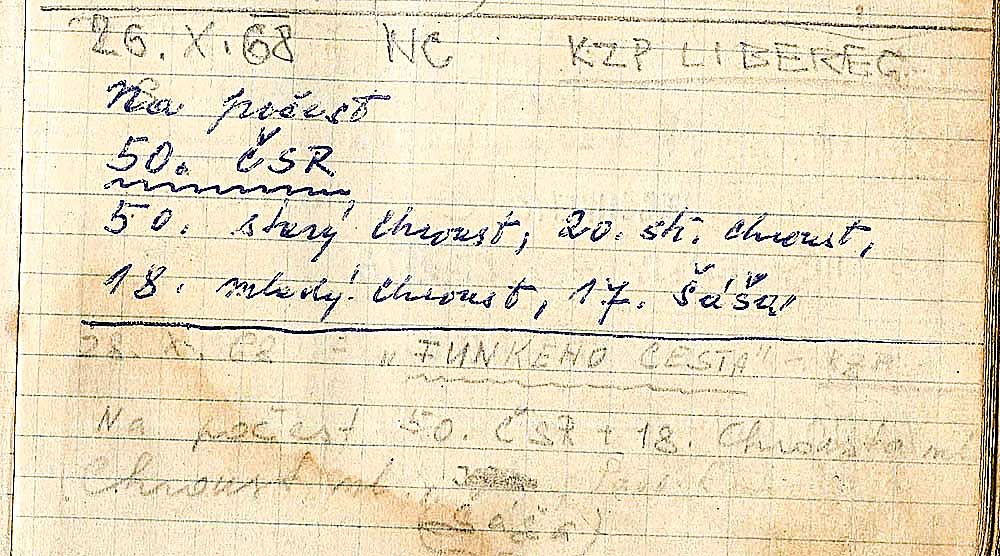 26. X. 68 NC KZP LIBEREC
Na počest
50. ČSR
50. starý Chroust, 20. st. Chroust,
18. mladý Chroust, 17. Šáša
28. X. 68 = „FUNKEHO CESTA" - KZP
Na počest 50. ČSR + 18. Chrousta ml
Chroust ml.,
(Šáša)